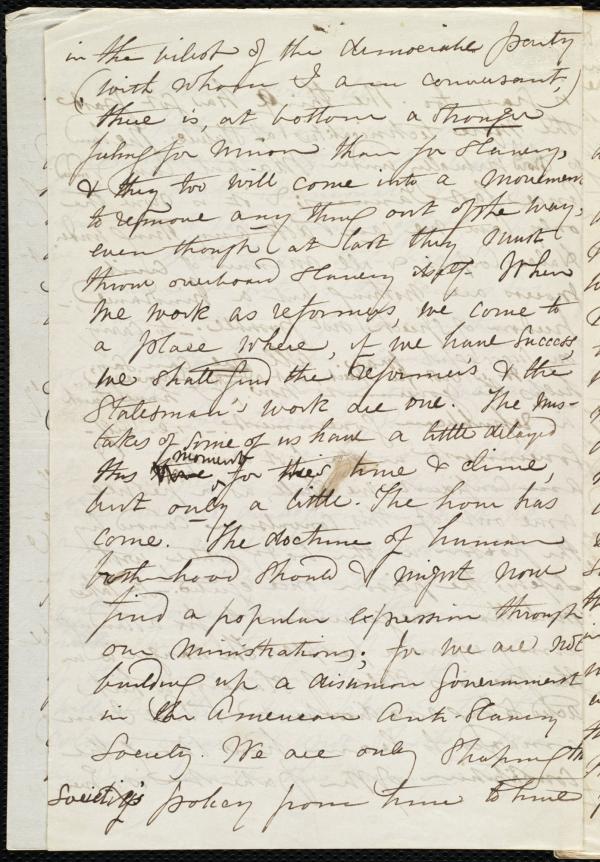 in the vilest of the democratic party
(with whom I am conversant,)
there is, at bottom a stronger
feeling for Union than for Slavery,
& they too will come into a movement
to remove any thing out of the way,
even though (at last they must
throw overboard Slavery itself. When
we work as reformers, we come to
a place where, if we have success,
we shall find the reformer's & the
Statesman's work are one. The mis-
takes of some of us have a little delayed
this moment, for this time & clime,
but only a little. The hour has
come. The doctrine of human
brotherhood should & might now
find a popular expression through
our ministrations; for we are not
building up a disunion Government
in the American Anti-Slavery
Society. We are only shaping the
Society's policy from time to time